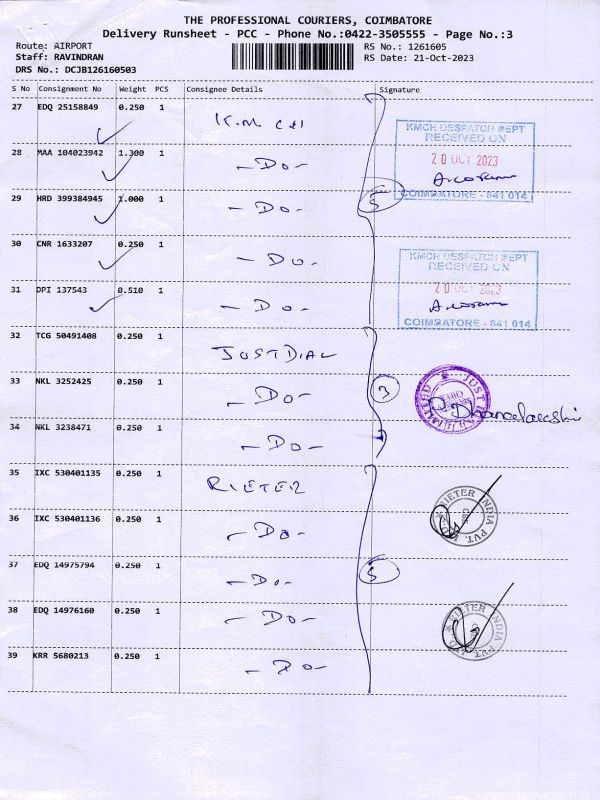 THE PROFESSIONAL COURIERS, COIMBATORE
Delivery Runsheet - PCC - Phone No.:0422-3505555 - Page No.:3
Route: AIRPORT RS No.: 1261605
Staff: RAVINDRAN RS Date: 21-Oct-2023
DRS No.: DCJB126160503
S No Consignment No Weight PCS Consignee Details Signature
27 EDQ 25158849 0.250 1
KMCH DESPATCH DEPT
RECEIVED ON
28 MAA 104023942 1.300 1 - Do -
20 OCT 2023
29 HRD 399384945 1.000 1 - Do - 5
COIMBATORE - 641 014
30 CNR 1633207 0.250 1 - Do -
KMCH DESPATCH DEPT
RECEIVED ON
31 DPI 137543 0.510 1 - Do -
20 OCT 2023
COIMBATORE - 641 014
32 TCG 50491408 0.250 1 JUSTDIAL
33 NKL 3252425 0.250 1 - Do - 3
34 NKL 3238471 0.250 1 - Do -
35 IXC 530401135 0.250 1 RIETER
RIETER INDIA PVT.
36 IXC 530401136 0.250 1 - Do -
37 EDQ 14975794 0.250 1 - Do - 5
38 EDQ 14976160 0.250 1 - Do -
RIETER INDIA PVT.
39 KRR 5680213 0.250 1 - Do -